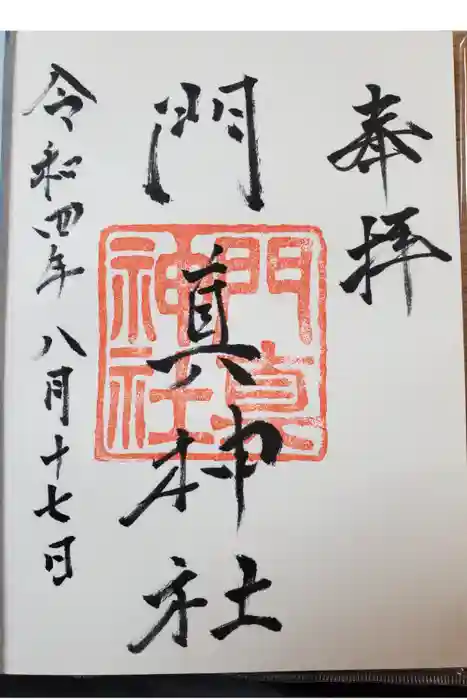 奉拝
門真神社
門真神社
令和四年八月十七日